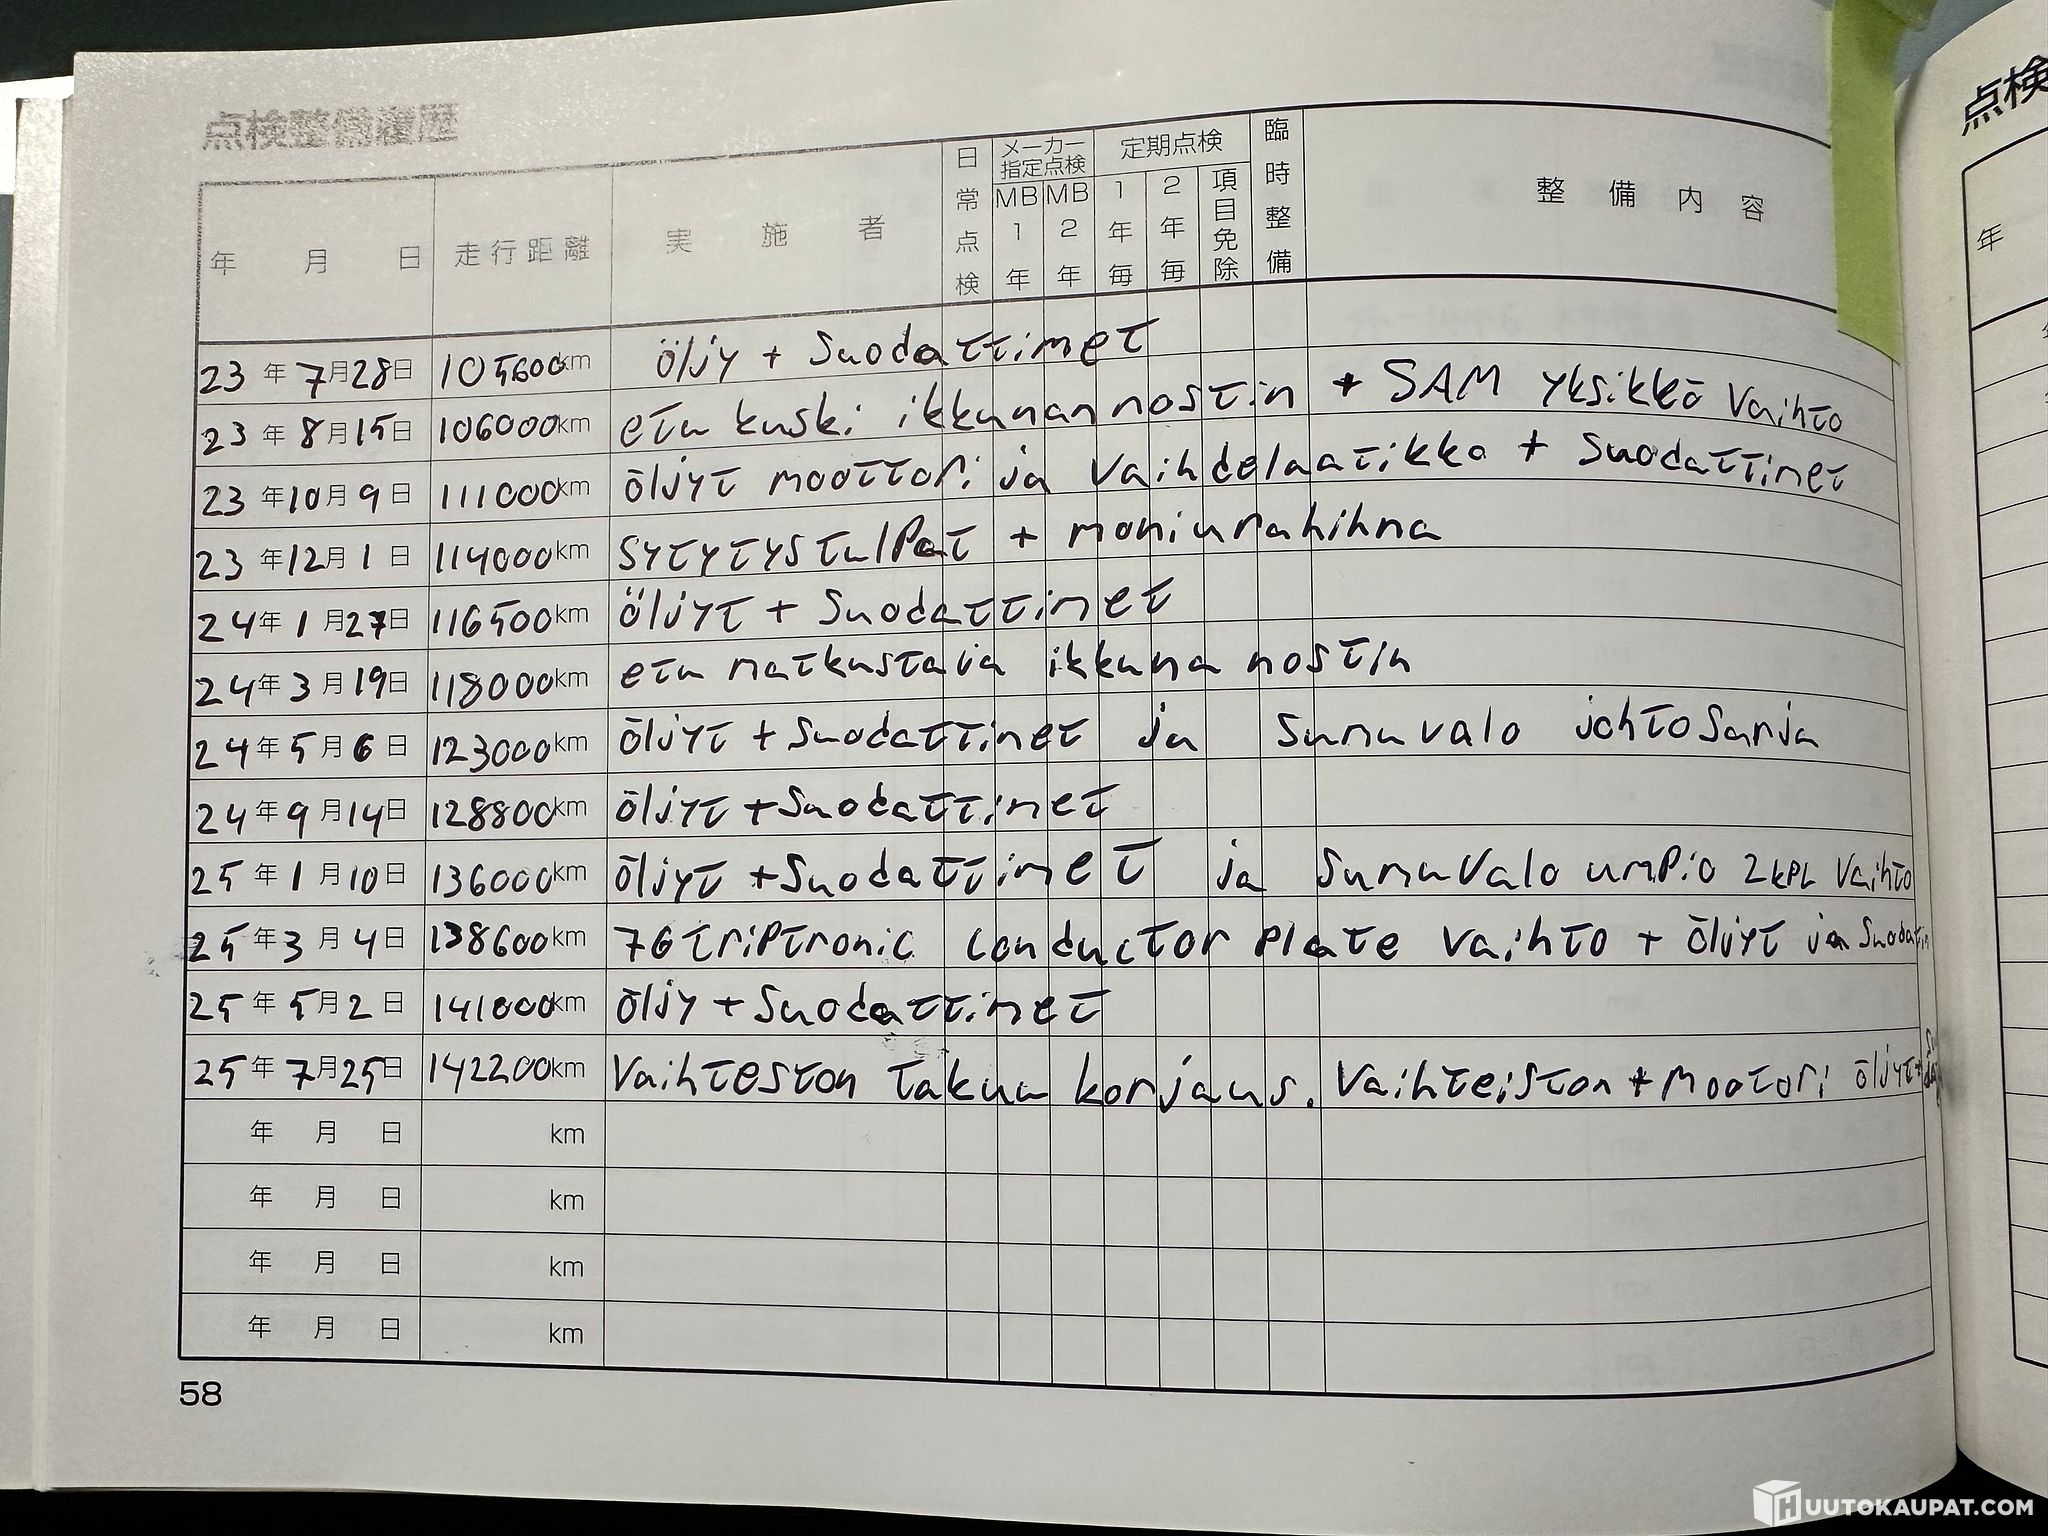 点検整備履歴
年 月 日 走行距離 実施者 日常点検 メーカー指定点検 MB1年 MB2年 定期点検 1年毎 2年毎 項目免除 臨時整備 整備内容
23年7月28日 105600km öljy + Suodattimet
23年8月15日 106000km etu kuski ikkunan nostin + SAM yksikkö vaihto
23年10月9日 111000km öljyt moottori ja vaihdelaatikko + Suodattimet
23年12月1日 114000km sytytystulpat + moniurahihna
24年1月27日 116500km öljyt + Suodattimet
24年3月19日 118000km etu matkustaja ikkuna nostin
24年5月6日 123000km öljyt + Suodattimet ja Sumuvalo johtosarja
24年9月14日 128800km öljyt + Suodattimet
25年1月10日 136000km öljyt + Suodattimet ja Sumuvalo umpio 2kpl vaihto
25年3月4日 138600km 7G triptronic conductor plate vaihto + öljyt ja
25年5月2日 141000km öljy + Suodattimet
25年7月25日 142200km Vaihteston takuu korjaus. Vaihteiston + mootori öljyt +
年 月 日 km
年 月 日 km
年 月 日 km
年 月 日 km
58
点検
年
HUUTOKAUPAT.COM